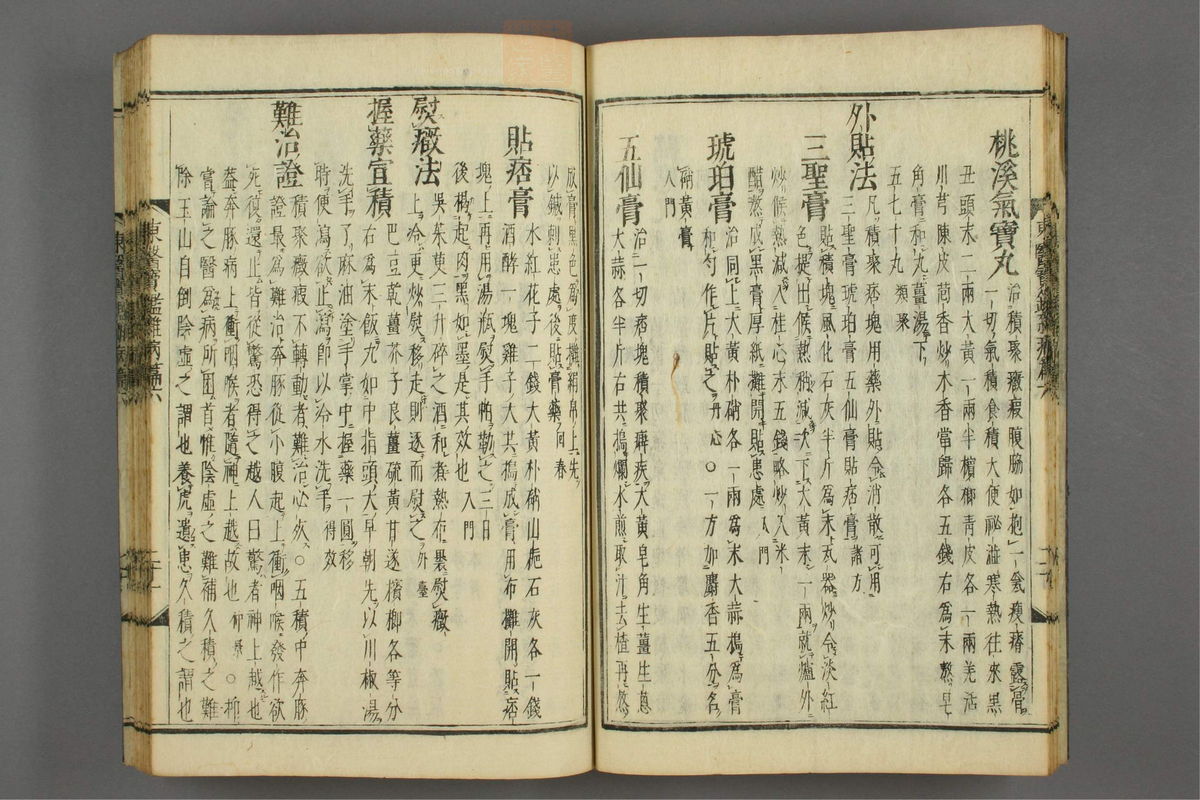 桃溪氣寶丸
治積聚癥瘕腹脇如抱一瓮瘦瘠露骨
一切氣積食積大便祕澁寒熱往來黑
丑頭末二兩大黃一兩半檳榔青皮各一兩羌活
川芎陳皮茴香炒木香當歸各五錢右爲末熬皂
角膏和丸薑湯下
五七十丸類聚
外貼法
凡積聚痞塊用藥外貼令消散可用
三聖膏琥珀膏五仙膏貼痞膏諸方
三聖膏
貼積塊風化石灰半斤爲末瓦器炒令淡紅
色提出候熱稍減次下大黃末一兩就爐外
炒候熱減入桂心末五錢略炒入米
醋熬成黑膏厚紙攤開貼患處入門
琥珀膏
治同上大黃朴硝各一兩爲末大蒜搗爲膏
和勻作片貼之丹心○一方加麝香五分名
硝黃膏
入門
五仙膏
治一切痞塊積聚癖疾大黃皂角生薑生葱
大蒜各半斤右共搗爛水煎取汁去楂再熬
成膏黑色爲度攤絹帛上先
以鍼刺患處後貼膏藥回春
貼痞膏
水紅花子二錢大黃朴硝山梔石灰各一錢
酒酵一塊雞子大共搗成膏用布攤開貼痞
塊上再用湯瓶熨手帕勒之三日
後揭起肉黑如墨是其效也入門
熨癥法
吳茱萸三升碎之酒和煮熱布裹熨癥
上冷更炒熨移走則逐而熨之外臺
握藥宣積
巴豆乾薑芥子良薑硫黃甘遂檳榔各等分
右爲末飯丸如中指頭大早朝先以川椒湯
洗手了麻油塗手掌中握藥一圓移
時便瀉欲止瀉卽以冷水洗手得效
難治證
積聚癥瘕不轉動者難治必死○五積中奔豚
證最爲難治奔豚從小腹起上衝咽喉發作欲
死復還止皆從驚恐得之越人曰驚者神上越也
蓋奔豚病上衝咽喉者隨神上越故也仲景○抑
嘗論之醫爲病所困首惟陰虛之難補久積之難
除玉山自倒陰虛之謂也養虎遺患久積之謂也